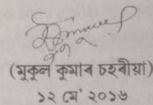 (মুকুল কুমাৰ চহৰীয়া)
১২ মে' ২০১৬